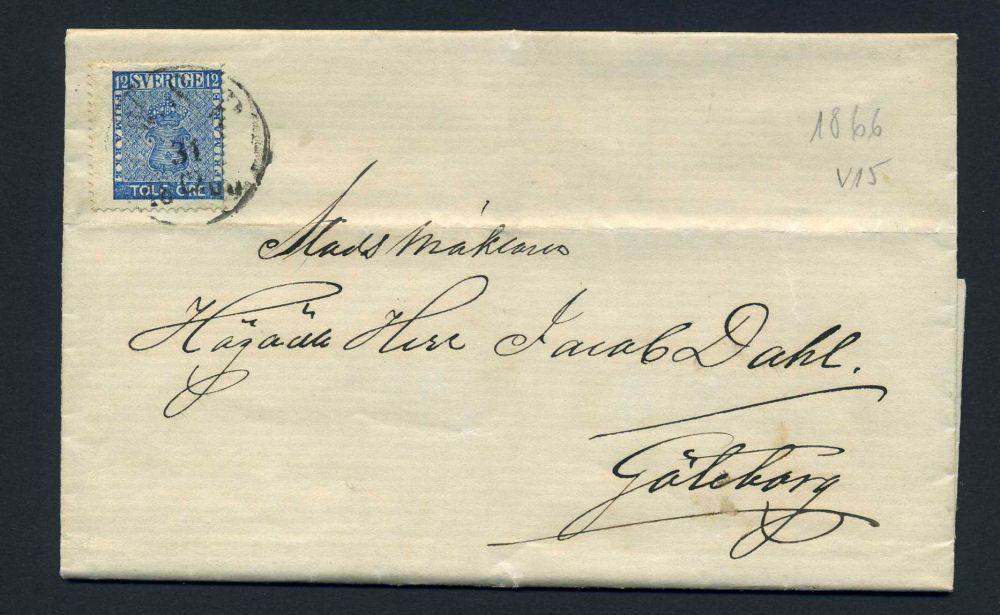 12 SVERIGE 12
FRIMÄRKE
FRIMÄRKE
31
TOLF ÖRE
1866
V15
Stadsmäklaren
Högädle Herr Jacob Dahl.
Göteborg